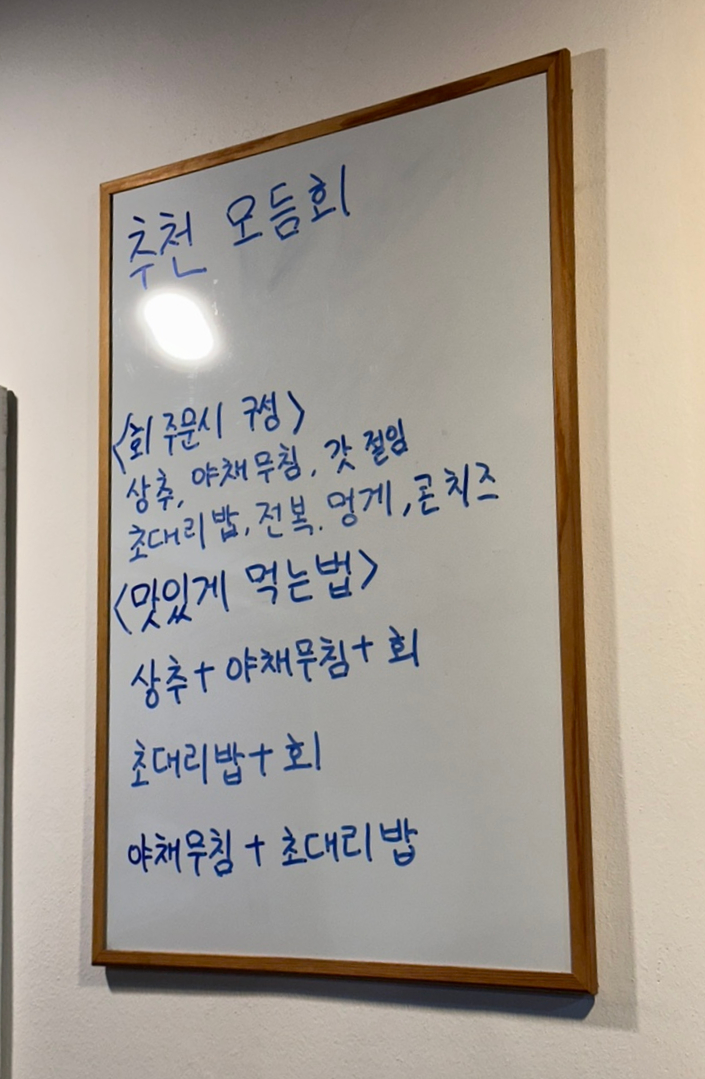 추천 모듬회
<회 주문시 구성>
상추, 야채무침, 갓 절임
초대리밥, 전복, 멍게, 콘치즈
<맛있게 먹는법>
상추+야채무침+회
초대리밥+회
야채무침+초대리밥